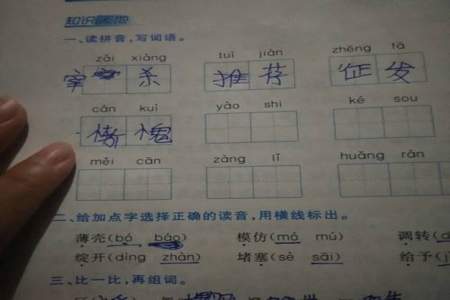 知识
一、读拼音,写词语。
zǎi xiàng tuī jiàn zhēng fā
宰 杀 推 荐 征 发
cán kuì yào shi ké sou
愧
měi cān zàng lǐ huǎng rán
二、给加点字选择正确的读音,用横线标出。
薄壳(bó báo) 模仿(mó mú) 调转(
绽开(dìng zhàn) 堵塞(sè sāi) 给予(
三、比一比,再组词。